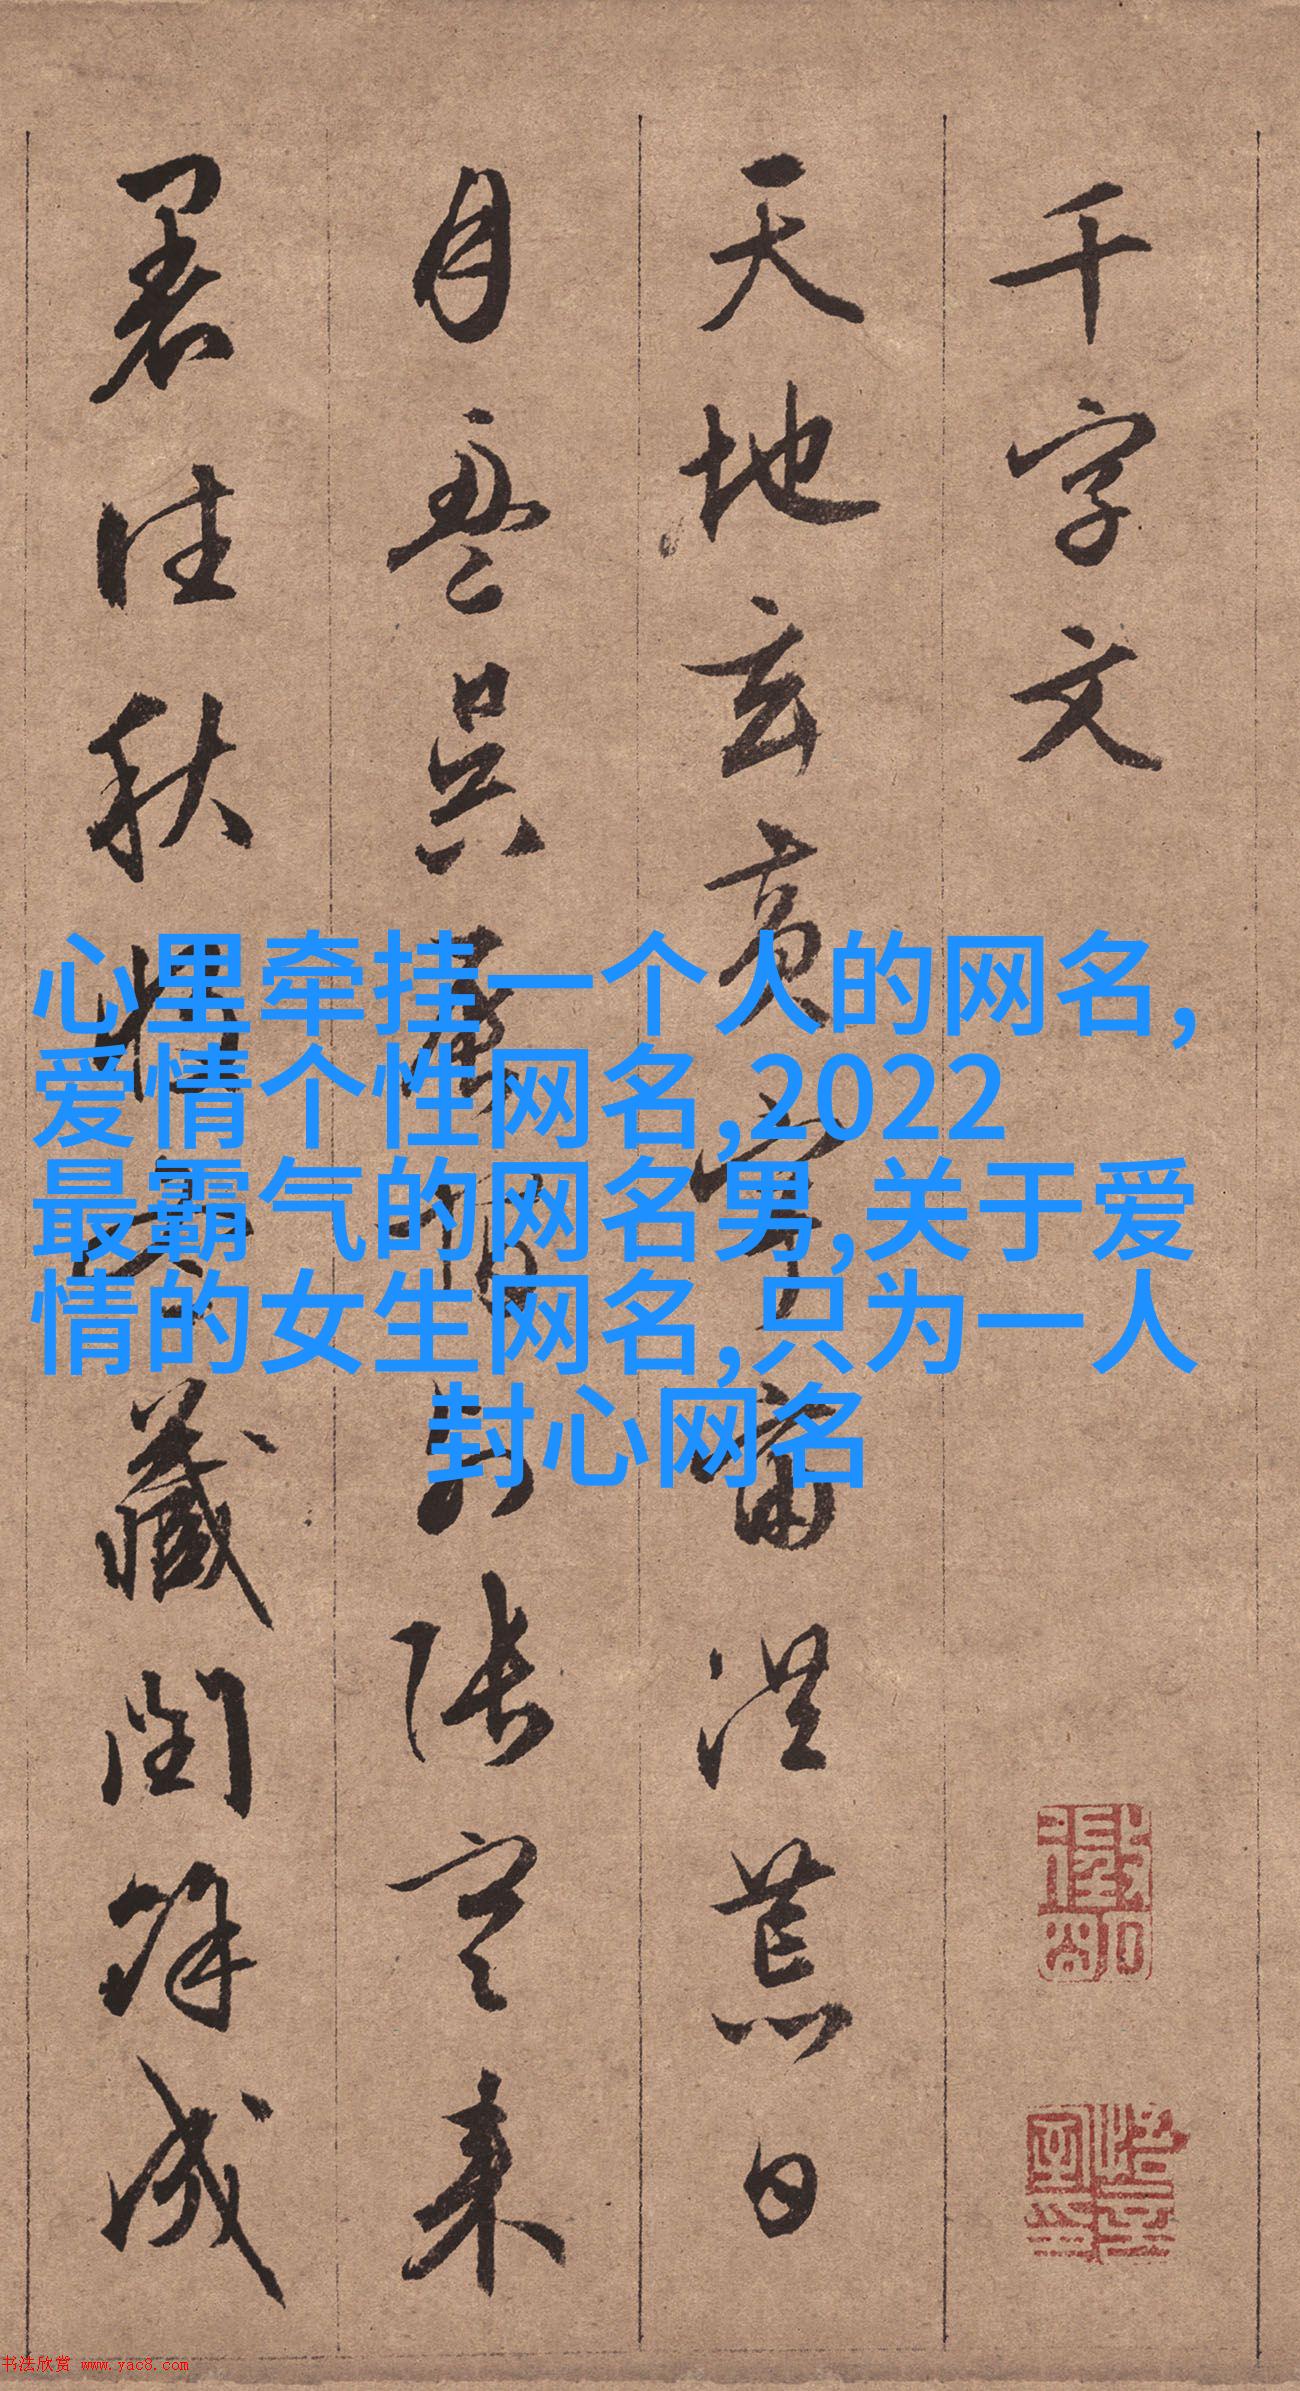 千字文
天地玄黄宇宙洪荒日
月盈昃辰宿列張寒来
暑往秋收冬藏閏餘成
心里牵挂一个人的网名,
爱情个性网名,2022
最霸气的网名男,关于爱
情的女生网名,只为一人
封心网名
书法欣赏 www.yac8.com